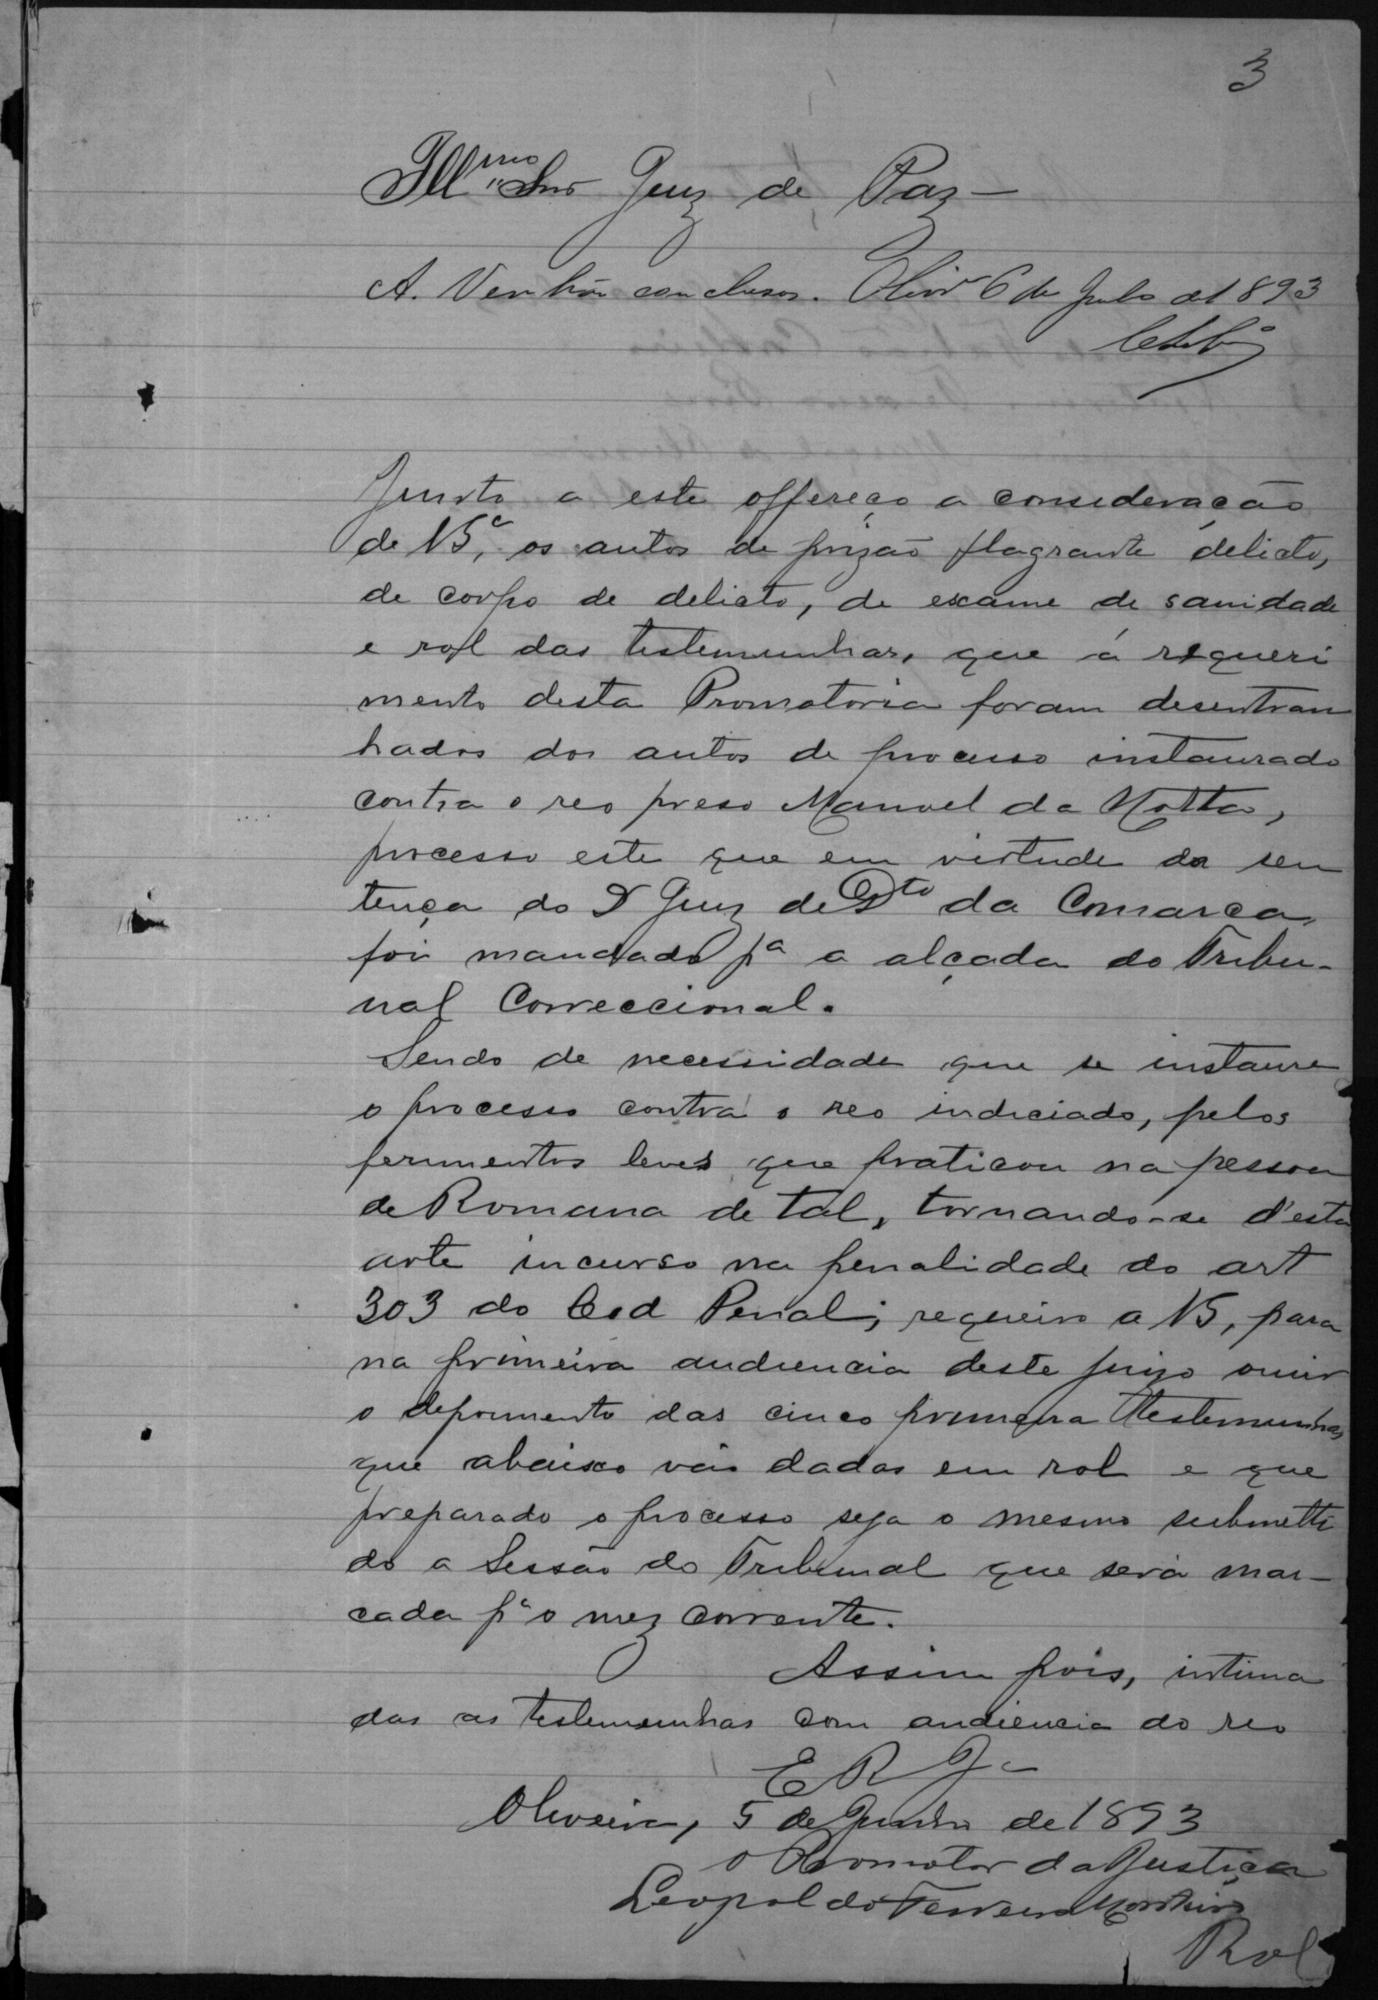 3
Illmo Snr Juiz de Paz —
A. Venhão conclusos. Olivrª 6 de Julho de 1893
Junto a este offereço a consideração
de VSª, os autos de prizão flagrante delicto,
de corpo de delicto, de exame de sanidade
e rol das testemunhas, que á requeri
mento desta Promotoria foram desentran
hados dos autos de processo instaurado
contra o reo preso Manoel da Motta,
processo este que em virtude da sen
tença do Dr Juiz de Dto da Comarca,
foi mandado pa a alçada do Tribu-
nal Correccional.
Sendo de necessidade que se instaure
o processo contra o reo indiciado, pelos
ferimentos leves que praticou na pessoa
de Romana de tal, tornando-se d'esta
arte incurso na penalidade do art
303 do Cod Penal; requeiro a VS, para
na primeira audiencia deste juizo ouvir
o depoimento das cinco primeira testemunhas
que abaixo vão dadas em rol e que
preparado o processo seja o mesmo submetti
do a Sessão do Tribunal que será mar-
cada pª o mez corrente.
Assim pois, intima
das as testemunhas com audiencia do reo
E R J
Oliveira, 5 de Junho de 1893
O Promotor da Justiça
Leopoldo Ferreira Monteiro
Rol